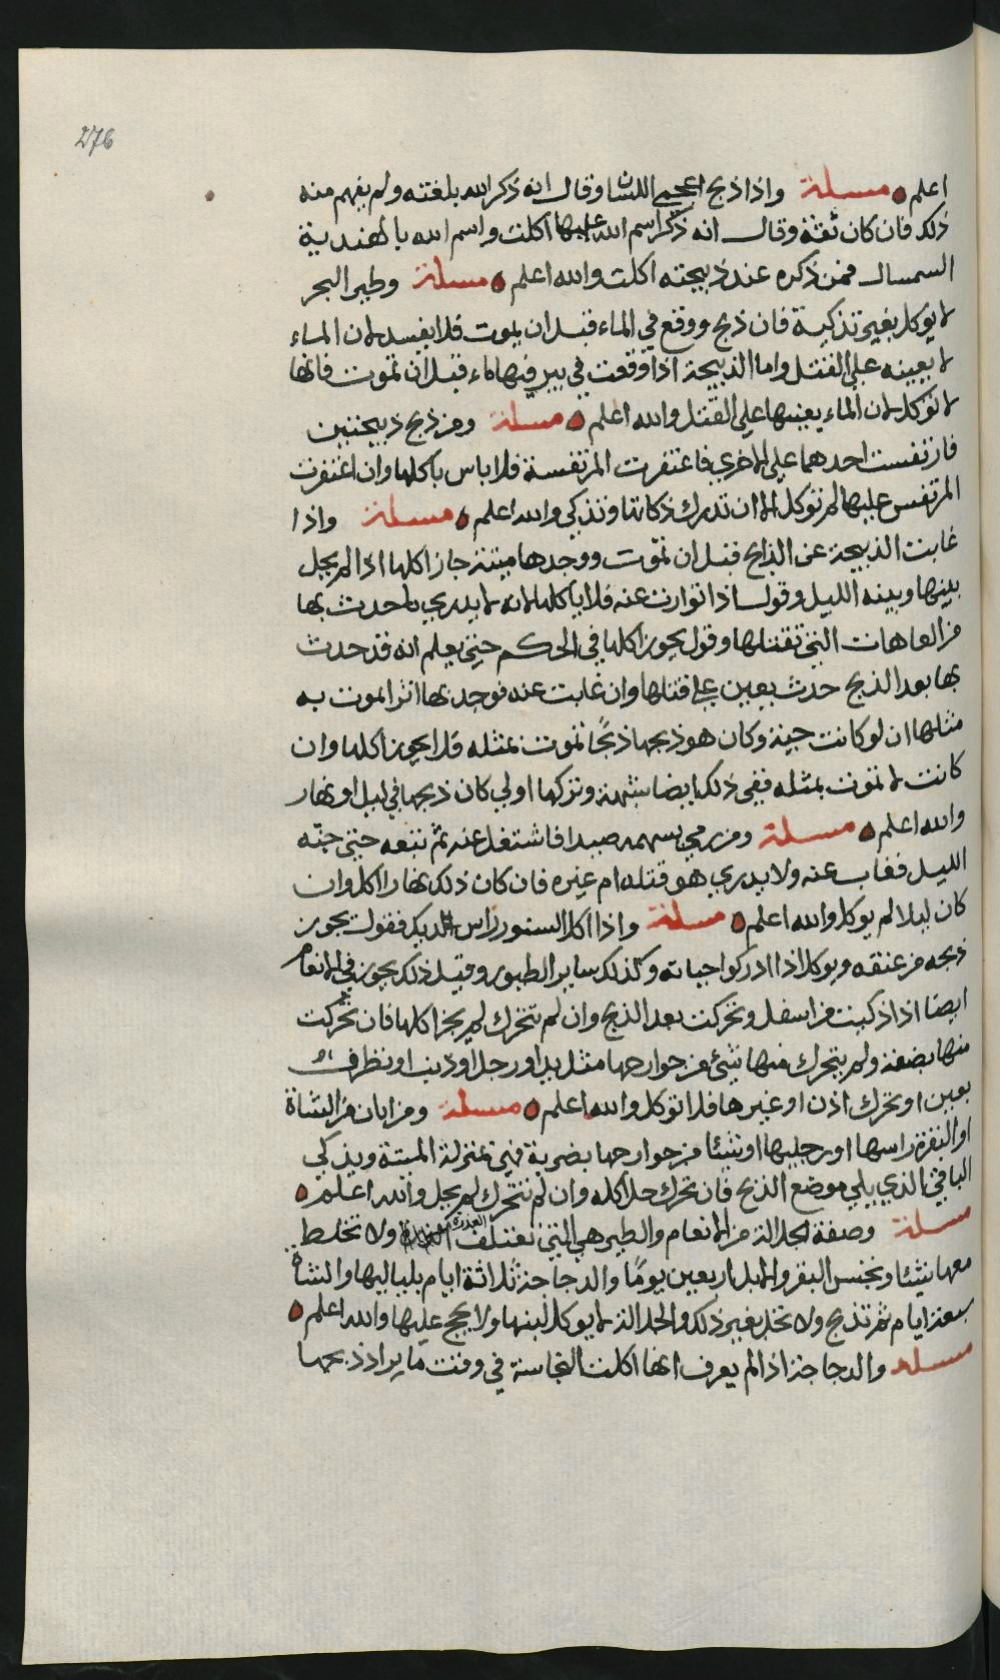 276
اعلم مسلة واذا ذبح اعجمي اللسان وقال انه ذكر الله بلغته ولم يفهم منه
ذلك فان كان ثقة وقال انه ذكر اسم الله عليها اكلت واسم الله بالهندية
السمسال فمن ذكره عند ذبيحته اكلت والله اعلم مسلة وطير البحر
لا يوكل بغير تذكية فان ذبح ووقع في الماء قبل ان يموت فلا يفسد لان الماء
لا يعينه على القتل واما الذبيحة اذا وقعت في بير فيها ماء قبل ان تموت فانها
لا توكل لان الماء يعينها علي القتل والله اعلم مسلة ومن ذبح ذبيحتين
فارتفست احدهما على الاخري فاعتفرت المرتفسة فلا باس باكلها وان اعتفرت
المرتفس عليها لم توكل الا ان تدرك ذكاتها وتذكي والله اعلم مسلة واذا
غابت الذبيحة عن الذابح قبل ان تموت ووجدها ميتة جاز اكلها اذا لم يحل
بينها وبينه الليل وقول اذا توارت عنه فلا ياكلها لانه لا يدري ما حدث بها
من العاهات التي تقتلها وقول يجوز اكلها في الحكم حتي يعلم انه قد حدث
بها بعد الذبح حدث يعين علي قتلها وان غابت عنه فوجد بها اثرا تموت به
مثلها ان لو كانت حية وكان هو ذبحها ذبحًا تموت بمثله فلا يجوز اكلها وان
كانت لا تموت بمثله ففي ذلك ايضا شبهة وتركها اولي كان ذبحها في ليل او نهار
والله اعلم مسلة ومن رمي بسهمه صيدا فاشتغل عنه ثم تبعه حتى جنه
الليل فغاب عنه ولا يدري هو قتله ام غيره فان كان ذلك نهارا اكل وان
كان ليلا لم يوكل والله اعلم مسلة واذا اكل السنور راس الديك فقول يجوز
ذبحه من عنقه ويوكل اذا ادركوا حياته وكذلك ساير الطيور وقيل ذلك يجوز في الانعام
ايضا اذا ذكيت من اسفل وتحركت بعد الذبح وان لم تتحرك لم يجز اكلها فان تحركت
منها بضعة ولم يتحرك منها شيء من جوارحها مثل يد او رجل او ذنب او تطرف
بعين او تحرك اذن او غيرها فلا توكل والله اعلم مسلة ومن ابان من الشاة
او البقرة راسها او رجليها او شيئا من جوارحها بضربة فهي بمنزلة الميتة ويذكي
الباقي الذي يلي موضع الذبح فان تحرك حل اكله وان لم تتحرك لم يحل والله اعلم
مسلة وصفة الجلالة من الانعام والطير هي التي تعتلف العذرة ولا تخلط
معها شيئا وتحبس البقر والابل اربعين يومًا والدجاجة ثلاثة ايام بلياليها والشاة
سبعة ايام ثم تذبح ولا تحل بغير ذلك والجلالة لا يوكل لبنها ولا يحج عليها والله اعلم
مسلة والدجاجة اذا لم يعرف انها اكلت النجاسة في وقت ما يراد ذبحها